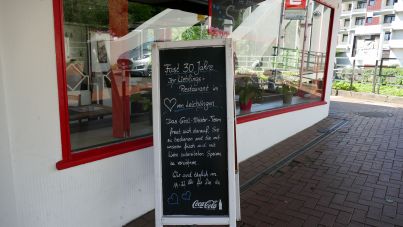 Fast 30 Jahre
Ihr Lieblings-
Restaurant in
Leichlingen.
Das Grill-Meister-Team
freut sich darauf, Sie
zu bedienen und Sie mit
unseren frisch und mit
Liebe zubereiteten Speisen
zu verwöhnen.
Wir sind täglich von
11-22 Uhr für Sie da
Coca-Cola